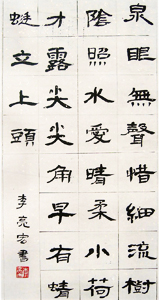 泉眼無聲惜細流樹
陰照水愛晴柔小荷
才露尖尖角早有蜻
蜓立上頭
李亮宏書